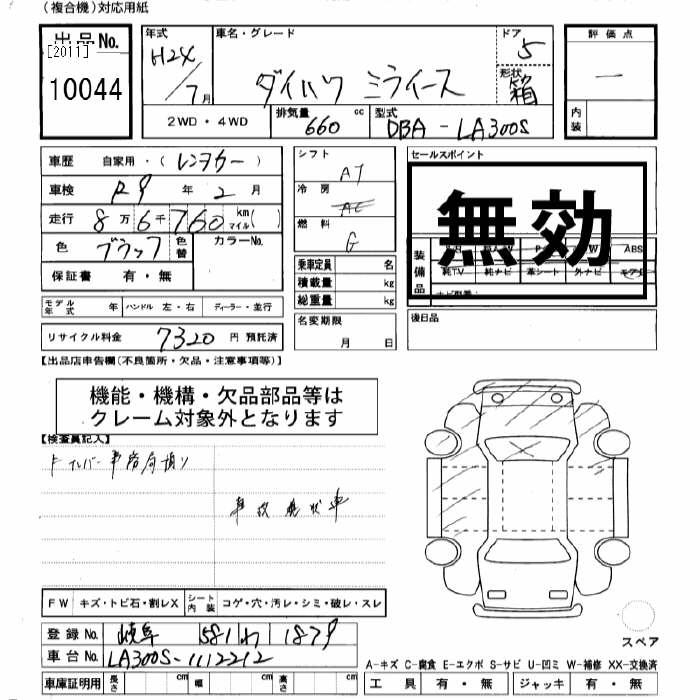 (複合機)対応用紙
出品No.
[2011]
10044
年式
H24/7月
車名・グレード
ダイハツ ミライース
ドア
5
形状
箱
評価点
一
内装
2WD・4WD
排気量 660 cc
型式 DBA-LA300S
車歴 自家用・(レンタカー)
車検 R9年2月
走行 8万6千760 km マイル( )
色 ブラック 色替 カラーNo.
保証書 有・無
モデル年式 年 ハンドル 左・右 ディーラー・並行
リサイクル料金 7320円 預託済
シフト AT
冷房 AC
燃料 G
乗車定員 名
積載量 kg
総重量 kg
名変期限
月 日
セールスポイント
無効
装備品
ABS
純TV 純ナビ 革シート 外ナビ エアB
後日品
【出品店申告欄(不良箇所・欠品・注意事項等)】
機能・機構・欠品部品等は
クレーム対象外となります
【検査員記入】
事故現状車
FW キズ・トビ石・割レX シート内装 コゲ・穴・汚レ・シミ・破レ・スレ
登録No. 岐阜 581 わ 1879
車台No. LA300S-1112212
車庫証明用 長さ cm 幅 cm 高さ cm
スペア
A-キズ C-腐食 E-エクボ S-サビ U-凹ミ W-補修 XX-交換済
工具 有・無 ジャッキ 有・無